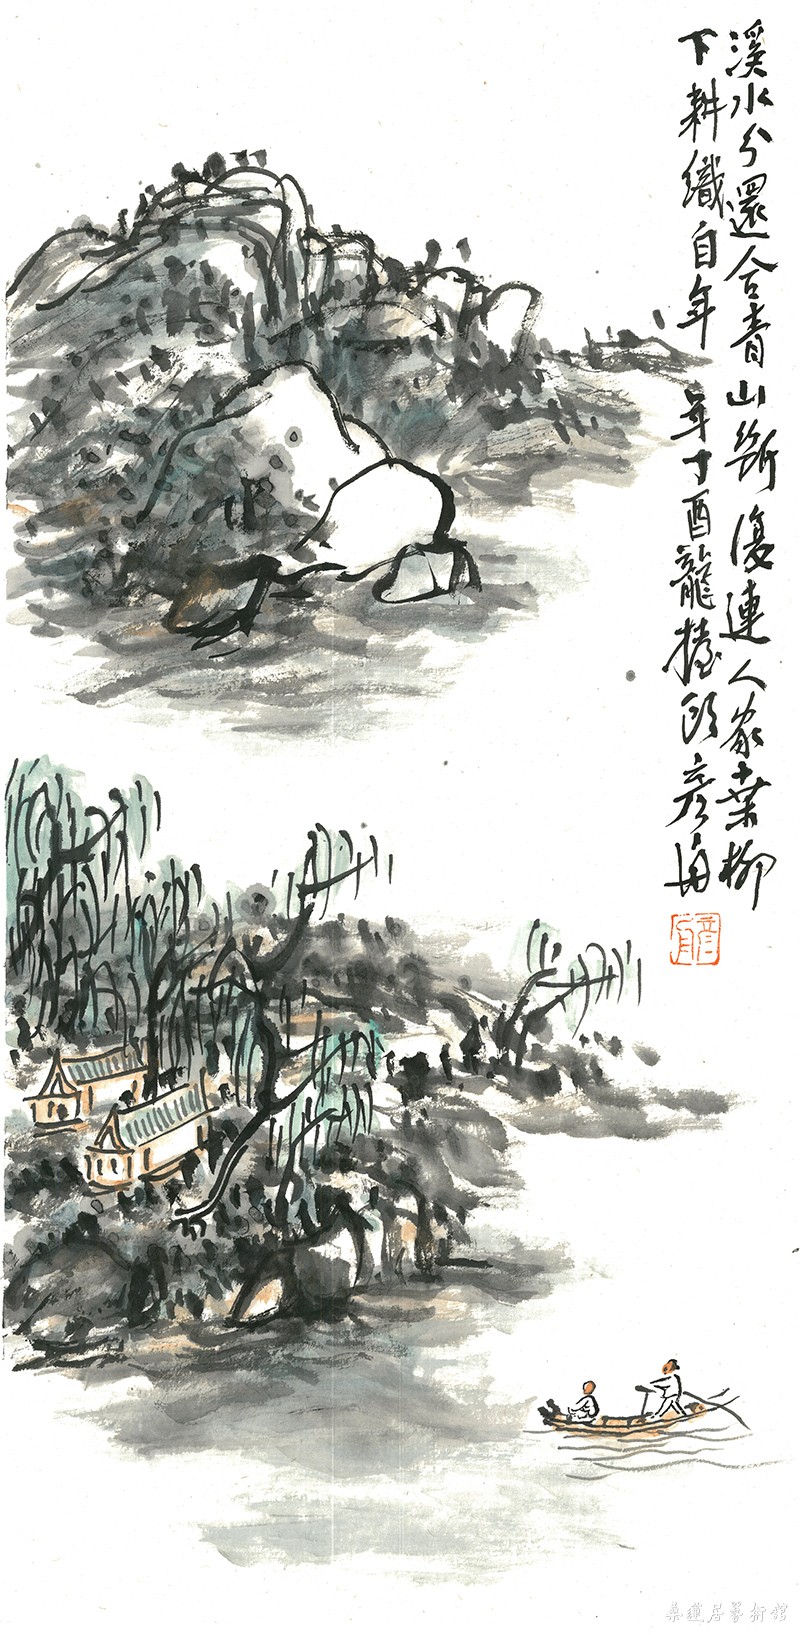 溪水分還合青山斷復連人家桑柳
下耕織自年年丁酉龍擡頭彥
桑蓮居藝術館